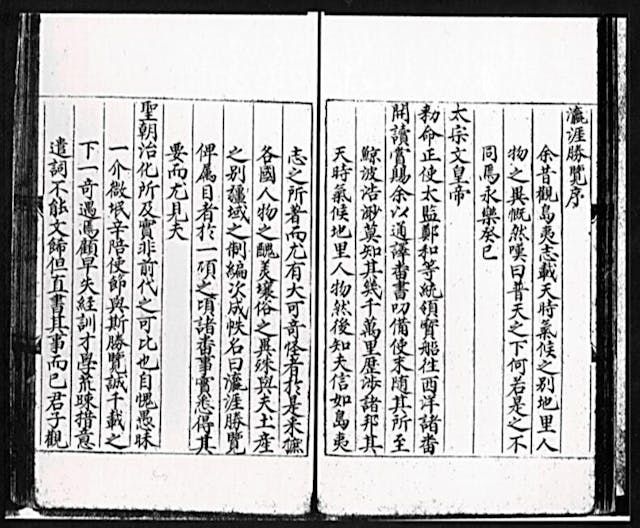 瀛涯勝覽序
余昔觀島夷志載天時氣候之別地里人
物之異慨然嘆曰普天之下何若是之不
同焉永樂癸巳
太宗文皇帝
勑命正使太監鄭和等統領寳船往西洋諸畨
開讀賞賜余以通譯畨書叨備使末隨其所至
鯨波浩渺莫知其幾千萬里歷涉諸邦其
天時氣候地里人物然後知夫信如島夷
志之所著而尤有大可奇怪者於是采摭
各國人物之醜美壤俗之異殊與夫土産
之別疆域之制編次成帙名曰瀛涯勝覽
俾属目者於一頃之項諸畨事實悉得其
要而尤見夫
聖朝治化所及實非前代之可比也自愧愚昧
一介微氓辛陪使節與斯勝覽誠千載之
下一奇遇焉顧早失經訓才學荒踈措意
遣詞不能文餙但直書其事而已君子觀